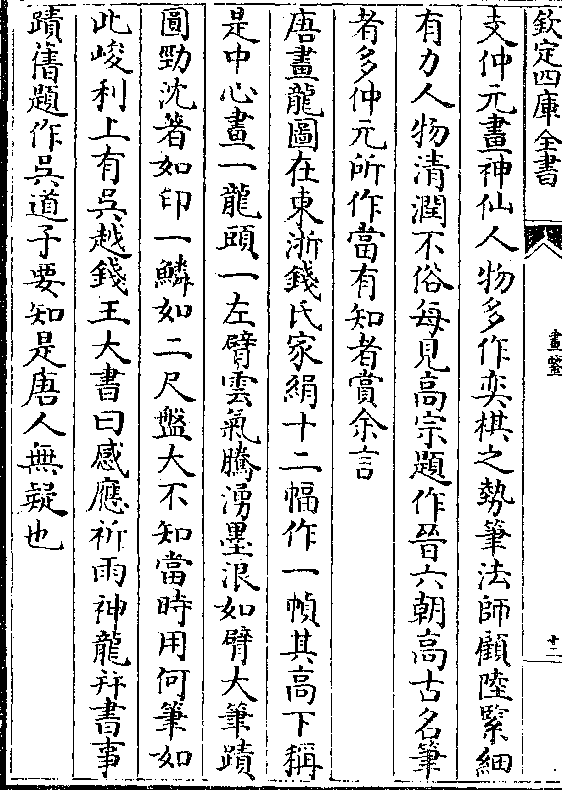 欽定四庫全書
畫鑒
十二
支仲元畫神仙人物多作奕棋之勢筆法師顧陸緊細
有力人物清潤不俗每見高宗題作晉六朝高古名筆
者多仲元所作當有知者賞余言
唐畫龍圖在東浙錢氏家絹十二幅作一幀其高下稱
是中心畫一龍頭一左臂雲氣騰湧墨浪如臂大筆蹟
圓勁沈著如印一鱗如二尺盤大不知當時用何筆如
此峻利上有吳越錢王大書曰感應祈雨神龍并書事
蹟舊題作吳道子要知是唐人無疑也